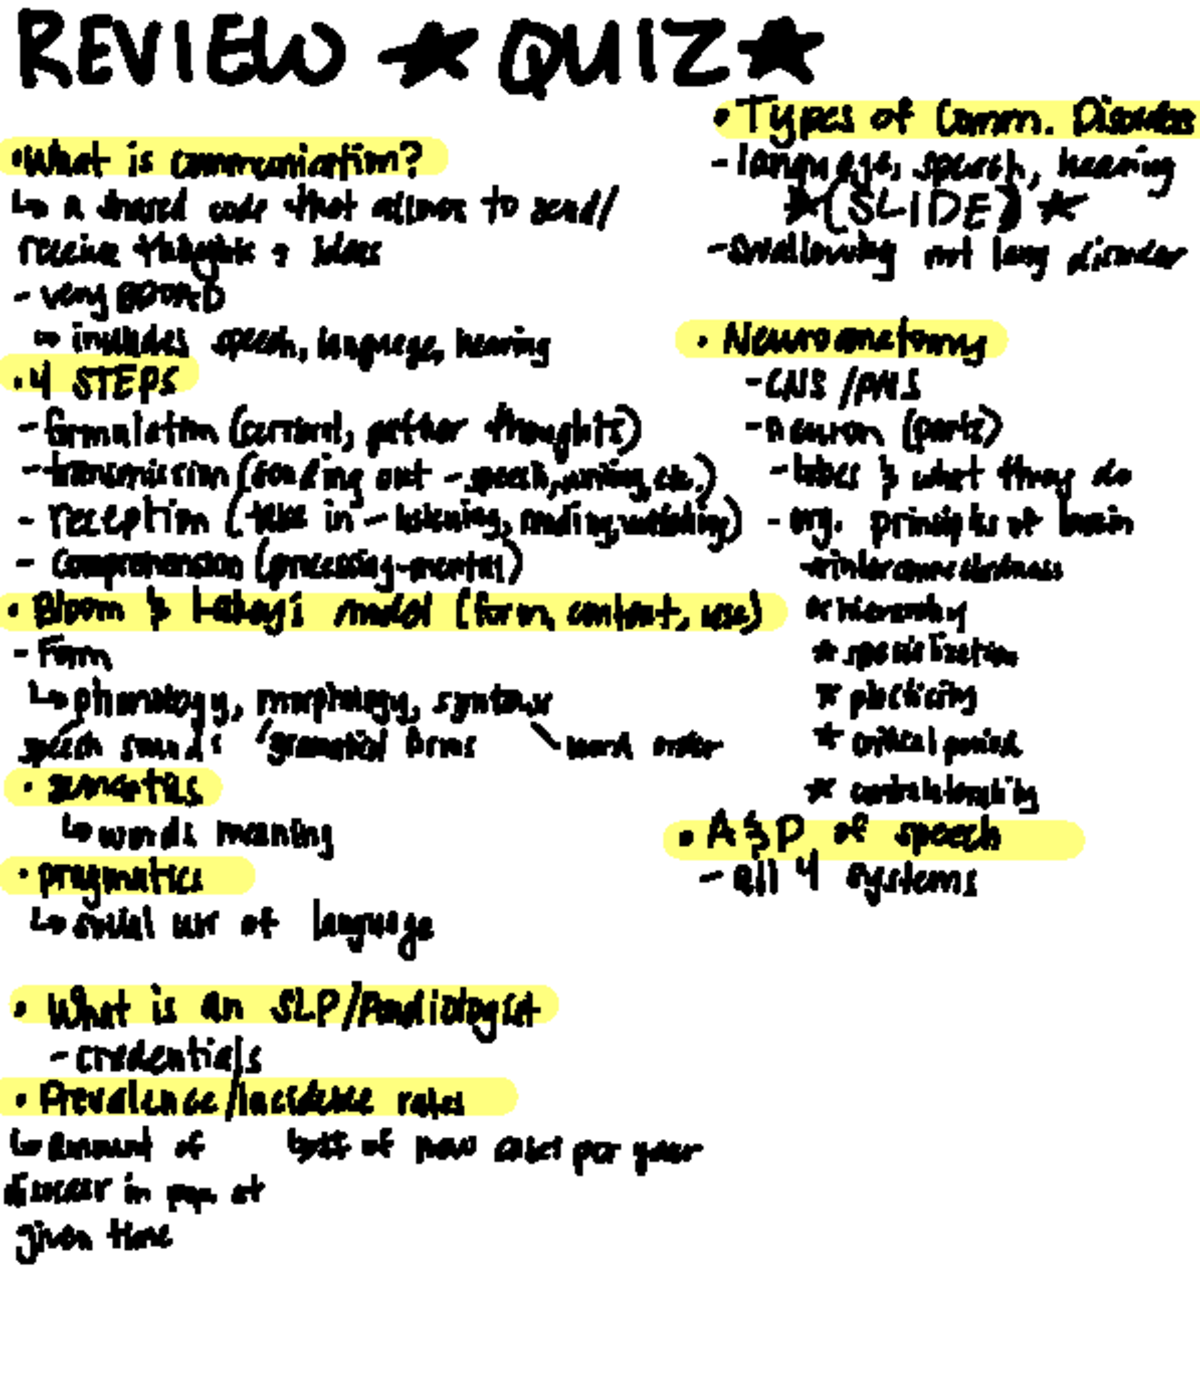 REVIEW ★ QUIZ ★
• What is communication?
↳ a shared code that allows to send/
receive thoughts & ideas
- very BROAD
↳ includes speech, language, hearing
• 4 STEPS
- formulation (, gather thoughts)
- transmission (sending out - speech, writing, etc.)
- reception (take in - listening, reading, watching)
- Comprehension (processing-mental)
• Bloom & Lahey's model (form, content, use)
- Form
↳ phonology, morphology, syntax
speech sounds gramatical forms word order
• semantics
↳ words meaning
• pragmatics
↳ social use of language
• What is an SLP/Audiologist
- credentials
• Prevalence/Incidence rates
↳ amount of of new cases per year
disorder in pop. at
given time
• Types of Comm. Disorders
- language, speech, hearing
★ (SLIDE) ★
- swallowing not lang disorder
• Neuroanatomy
- CNS / PNS
- neuron (parts)
- lobes & what they do
- org. principles of brain
★ interconnectedness
★ hierarchy
★ specialization
★ plasticity
★ critical period
★ contralaterality
• A & P of speech
- all 4 systems